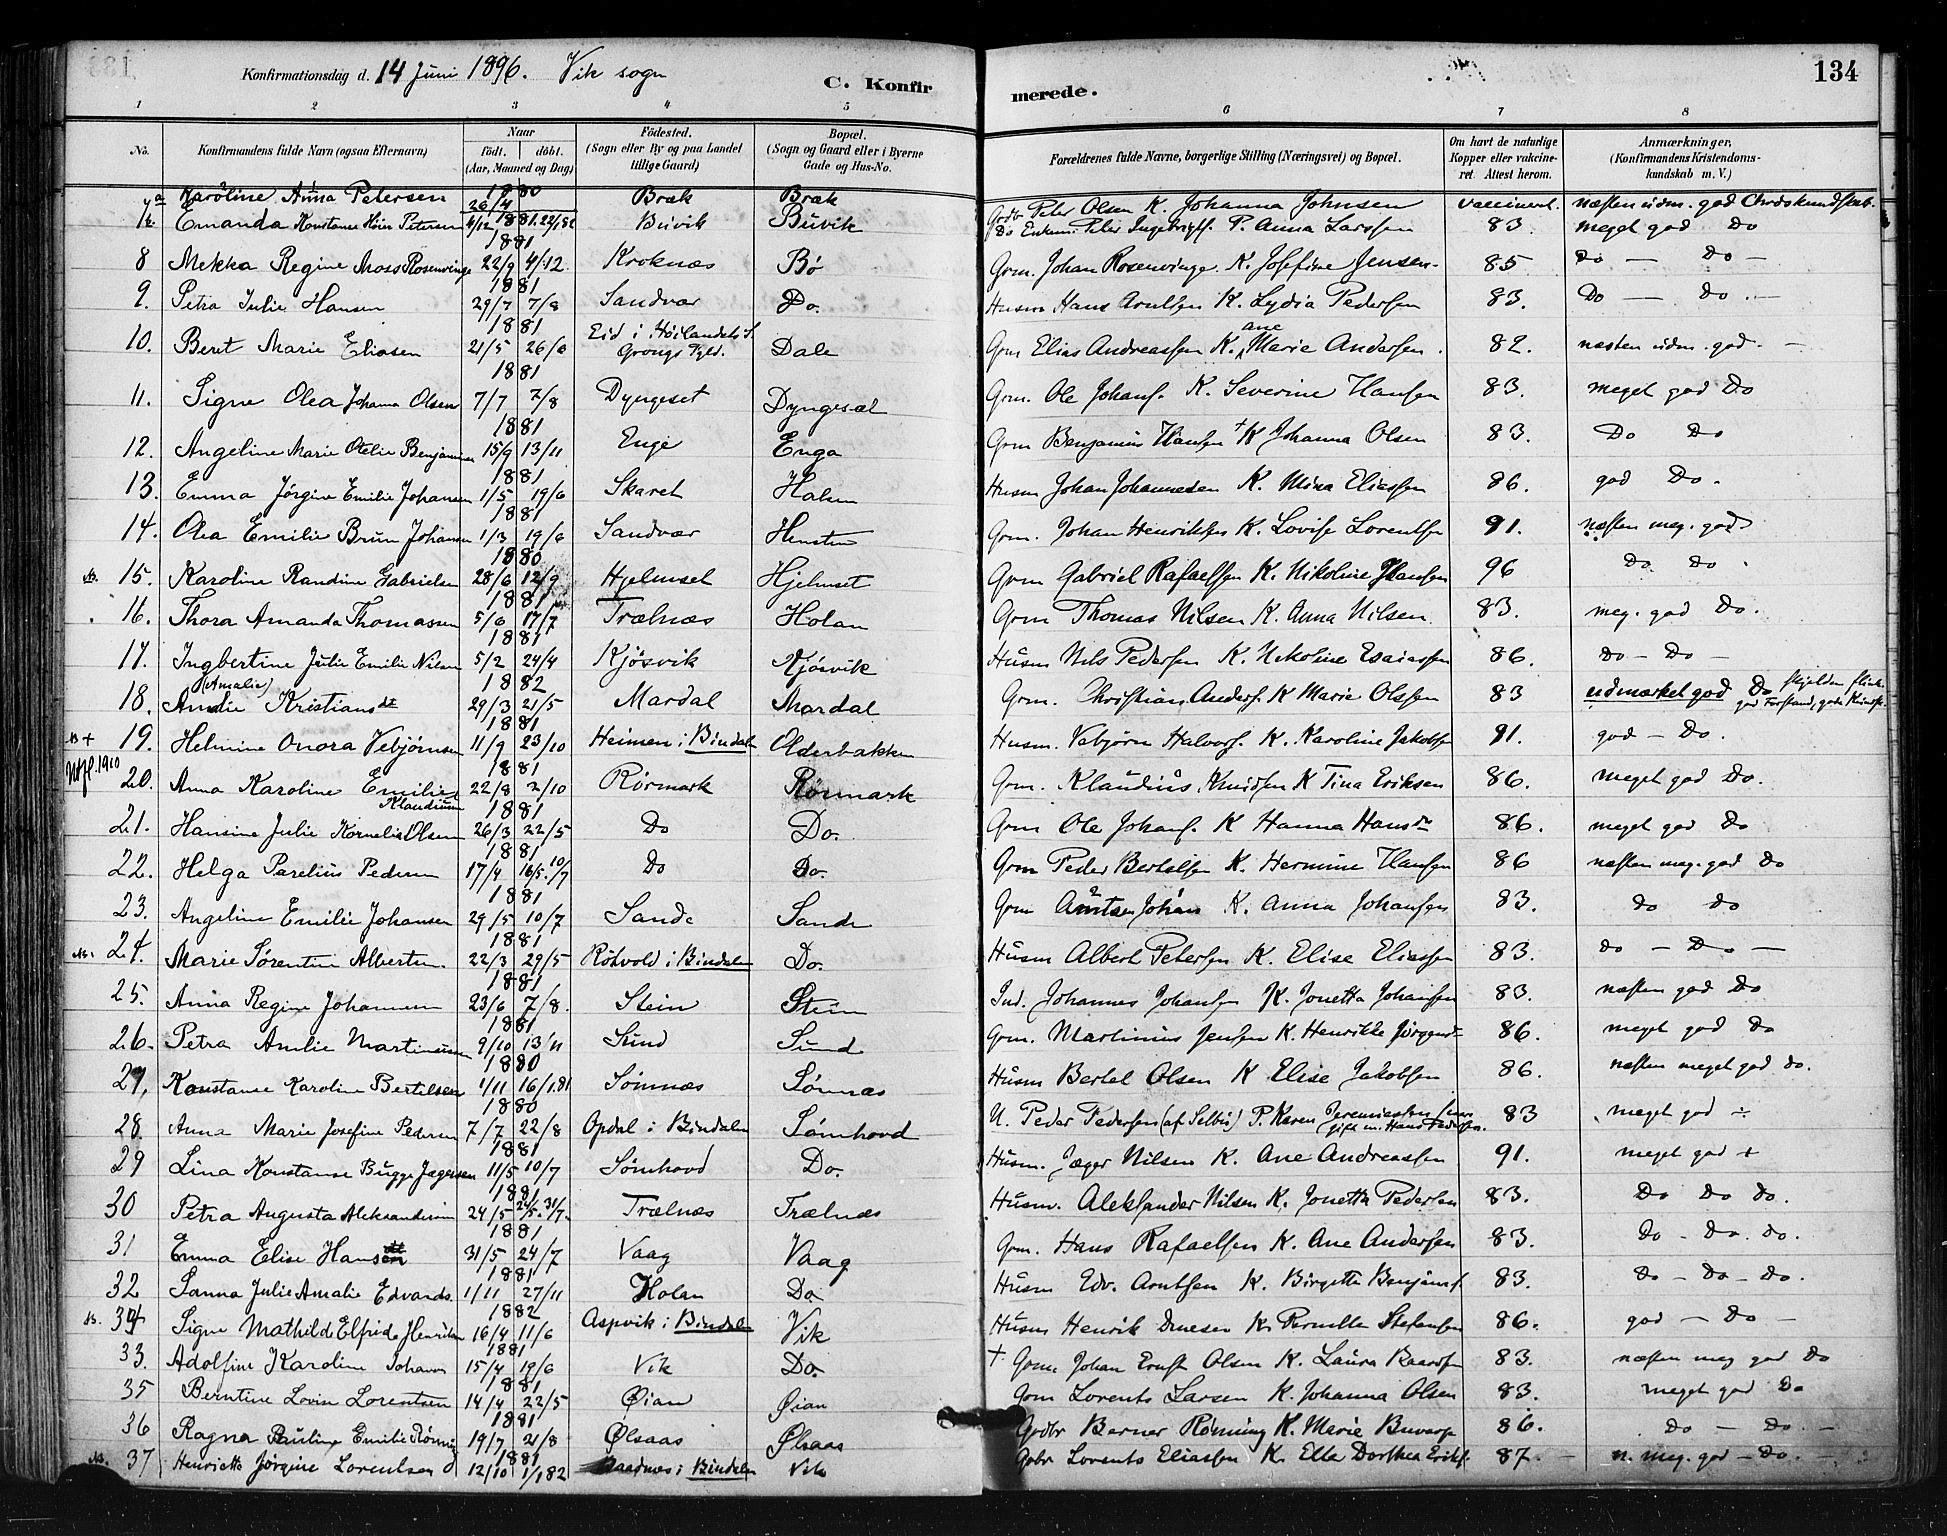 Konfirmationsdag d. 14 Juni 1896. Vik sogn
C. Konfirmerede.
134
1 2 3 4 5 6 7 8
No. Konfirmandens fulde Navn (ogsaa Efternavn) Naar födt. döbt. (Aar, Maaned og Dag) Födested. (Sogn eller By og paa Landet tillige Gaard) Bopæl. (Sogn og Gaard eller i Byerne Gade og Hus-No. Forældrenes fulde Navne, borgerlige Stilling (Næringsvei) og Bopæl. Om havt de naturlige Kopper eller vakcineret. Attest herom. Anmærkninger, (Konfirmandens Kristendomskundskab m. V.)
7a Karoline Anna Petersen 1880 26/4 Bræk Bræk Gdbr Peter Olsen K. Johanna Johnsen vaccineret. næsten udm. god Christkundskab.
7b Emanda Konstanse Höier Petersen 4/12 1881. 22/1 82 Buvik Buvik Do Enkem. Peter Ingebrigts. P. Anna Larssen 83. meget god Do
8 Mekka Regine Moss Rosenvinge 1881 22/9 4/12. Kroknæs Bö Grm. Johan Rosenvinge. K. Josefine Jensen. 85. Do — Do —
9. Petra Julie Hansen 1881 29/7 7/8 Sandvær Do. Husm Hans Arntsen K. Lydia Pedersen 83. Do — Do. —
10. Beret Marie Eliasen 1881 21/5 26/6 Eid i Höilandets s. Grongs Pgld. Dale Grm Elias Andreassen K. ane Marie Andersen. 82. næsten udm. god. —
11. Signe Olea Johanna Olsen 1881 7/7 7/8 Dyngeset Dyngesæt Grm. Ole Johans. K. Severine Hansen 83. meget god Do
12. Angeline Marie Otelie Benjaminsen 1881 15/9 13/11 Enge Enga Grm Benjamin Hansen + K Johanna Olsen 83. Do Do
13. Emma Jörgine Emilie Johansen 1881 1/5 19/6 Skaret Halsen Husm Johan Johannesen K. Mina Eliassen 86. god Do.
14. Olea Emilie Brun Johansen 1881 1/3 19/6 Sandvær Hensten Grm. Johan Henriksen K. Lovise Lorentsen 91. næsten meg. god
15. Karoline Randine Gabrielsen 1880 28/6 12/9 Hjelmset Hjelmset Grm Gabriel Rafaelsen K. Nikoline Hansen 96 Do Do
16. Thora Amanda Thomassen 1881 5/6 17/7 Trælnæs Holan Grm Thomas Nilsen K. Anna Nilsen 83. meg. god Do.
17. Ingbertine Julie Emilie Nilsen 1881 5/2 24/4 Kjösvik Kjösvik Husm Nils Pedersen K. Nikoline Esaiassen 86. Do — Do —
18. (Amalie) Amalie Kristiansdt 1882 29/3 21/5 Mardal Mardal Grm. Christian Anders. K Marie Olssen 83 udmærket god Do
19. Helmine Onora Vebjörnsen 1881 11/9 23/10 Heimen i Bindalen Olderbakken Husm. Vebjörn Halvors. K. Karoline Jakobsen 91. god — Do.
20. Anna Karoline Emilie Klaudiusen 1881 22/8 2/10 Rörmark Rörmark Grm. Klaudius Knudsen K Tina Eriksen 86. meget god Do.
21. Hansine Julie Kornelie Olsen 1881 26/3 22/5 Do Do. Grm Ole Johans. K Hanna Hansdr 86. meget god Do
22. Helga Parelius Pedersen 1881 17/4 16/5. 10/7 Do Do. Grm Peder Bertelsen K. Hermine Hansen 86 næsten meg. god Do
23. Angeline Emilie Johansen 1881 29/5 10/7 Sande Sande Grm Arntsen Johan K. Anna Johansen 83. Do Do
24. Marie Sörentine Albertsen 1881 22/3 29/5 Rötvold i Bindalen Do. Husm Albert Petersen K. Elise Eliassen 83. Do — Do —
25. Anna Regine Johannesen 1881 23/6 7/8. Stein Stein Ind. Johannes Johansen K. Jonetta Johansen 83. næsten god Do
26. Petra Amelie Martinussen 1881 9/10 13/11 Sund Sund Grm. Martinus Jensen K. Henrikke Jörgensdr 86. meget god Do
27. Konstanse Karoline Bertilsen 1880 1/11 16/1 81 Sömnæs Sömnæs Husm Bertel Olsen K Elise Jakobsen 86. næsten meget god do.
28. Anna Marie Josefine Pedersen 1880 7/7 22/8 Opdal i Bindalen Sömhovd U. Peder Pedersen (af Selbu) P. Karen Jeremiassen gift m. Hans Pedersen. 83 meget god ÷
29 Lina Konstanse Bugge Jægersen 1881 11/5 10/7 Sömhovd Do. Husm. Jæger Nilsen K. Ane Andreassen 91. meget god +
30 Petra Augusta Aleksandersen 1881 24/5 24/5. 31/7. Trælnæs Trælnæs Husm. Aleksander Nilsen K. Jonetta Pedersen 83. Do Do Do.
31 Emma Elise Hansen 1881 31/5 24/7 Vaag Vaag Grm. Hans Rafaelsen K. Ane Andersen 83. Do — Do. Do.
32 Sanna Julie Amalie Edvards. 1881 1/11 27/11 Holan Do Husm Edv. Arntsen K. Birgitta Benjams. 83. Do — Do — Do.
34 Signe Mathilde Elfrida Henriksen 1882 16/4 11/6 Aspvik i Bindalen Vik Husm Henrik K. Pernella Stefansen 86. god — Do —
33. Adolfine Karoline Johans 1881 15/4 19/6 Vik Do. + Grm Johan Ernst Olsen K. Laura 83. næsten meg god Do
35 Berntine Lovise Lorentsen 1881 14/4 22/5 Øian Øian Grm Lorents Larsen K. Johanna Olsen 83. meget god Do
36 Ragna Pauline Emilie Rönning 1881 19/7 21/8 Ølsaas Ølsaas Grdbr Berner Rönning K. Marie 86. Do — Do. —
37 Henriette Jörgine Lorentsen 1881 12/10 1/1 82 i Bindalen Vik Gdbr Lorents Eliassen K. Ella Dorthea Eriks. 87. — n. meg. god — Do. —